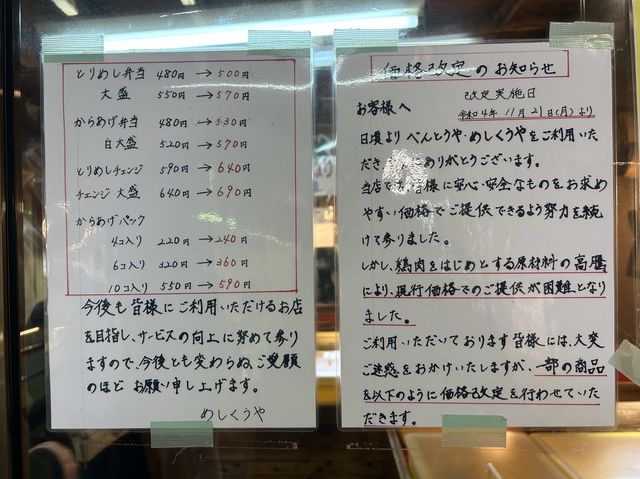 価格改定のお知らせ
改定実施日
令和4年11月21日(月)より
お客様へ
日頃よりべんとうや・めしくうやをご利用いた
だき ありがとうございます。
当店では 皆様に安心・安全なものをお求め
やすい価格でご提供できるよう努力を続
けて参りました。
しかし、鶏肉をはじめとする原材料の高騰
により、現行価格でのご提供が困難となり
ました。
ご利用いただいております皆様には、大変
ご迷惑をおかけいたしますが、一部の商品
を以下のように価格改定を行わせていた
だきます。
とりめし弁当 480円 → 500円
大盛 550円 → 570円
からあげ弁当 480円 → 530円
白大盛 520円 → 570円
とりめしチェンジ 590円 → 640円
チェンジ大盛 640円 → 690円
からあげパック
4コ入り 220円 → 240円
6コ入り 320円 → 360円
10コ入り 550円 → 590円
今後も皆様にご利用いただけるお店
を目指し、サービスの向上に努めて参り
ますので、今後とも変わらぬご愛顧
のほど お願い申し上げます。
めしくうや